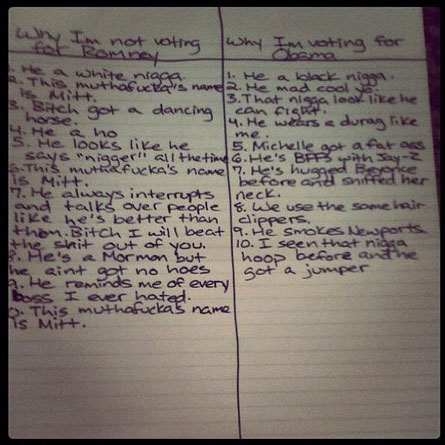 Why I'm not voting
for Romney
1. He a white nigga
2. This muthafucka's name
is Mitt.
3. Bitch got a dancing
horse.
4. He a ho
5. He looks like he
says "nigger" all the time
6. This muthafucka's name
is Mitt.
7. He always interrupts
and talks over people
like he's better than
them. Bitch I will beat
the shit out of you.
8. He's a Mormon but
he aint got no hoes
9. He reminds me of every
boss I ever hated.
0. This muthafucka's name
is Mitt.
Why I'm voting for
Obama
1. He a black nigga.
2. He mad cool yo.
3. That nigga look like he
can fight.
4. He wears a durag like
me.
5. Michelle got a fat ass
6. He's BFFs with Jay-Z
7. He's hugged Beyonce
before and sniffed her
neck.
8. We use the same hair
clippers.
9. He smokes Newports.
10. I seen that nigga
hoop before and he
got a jumper